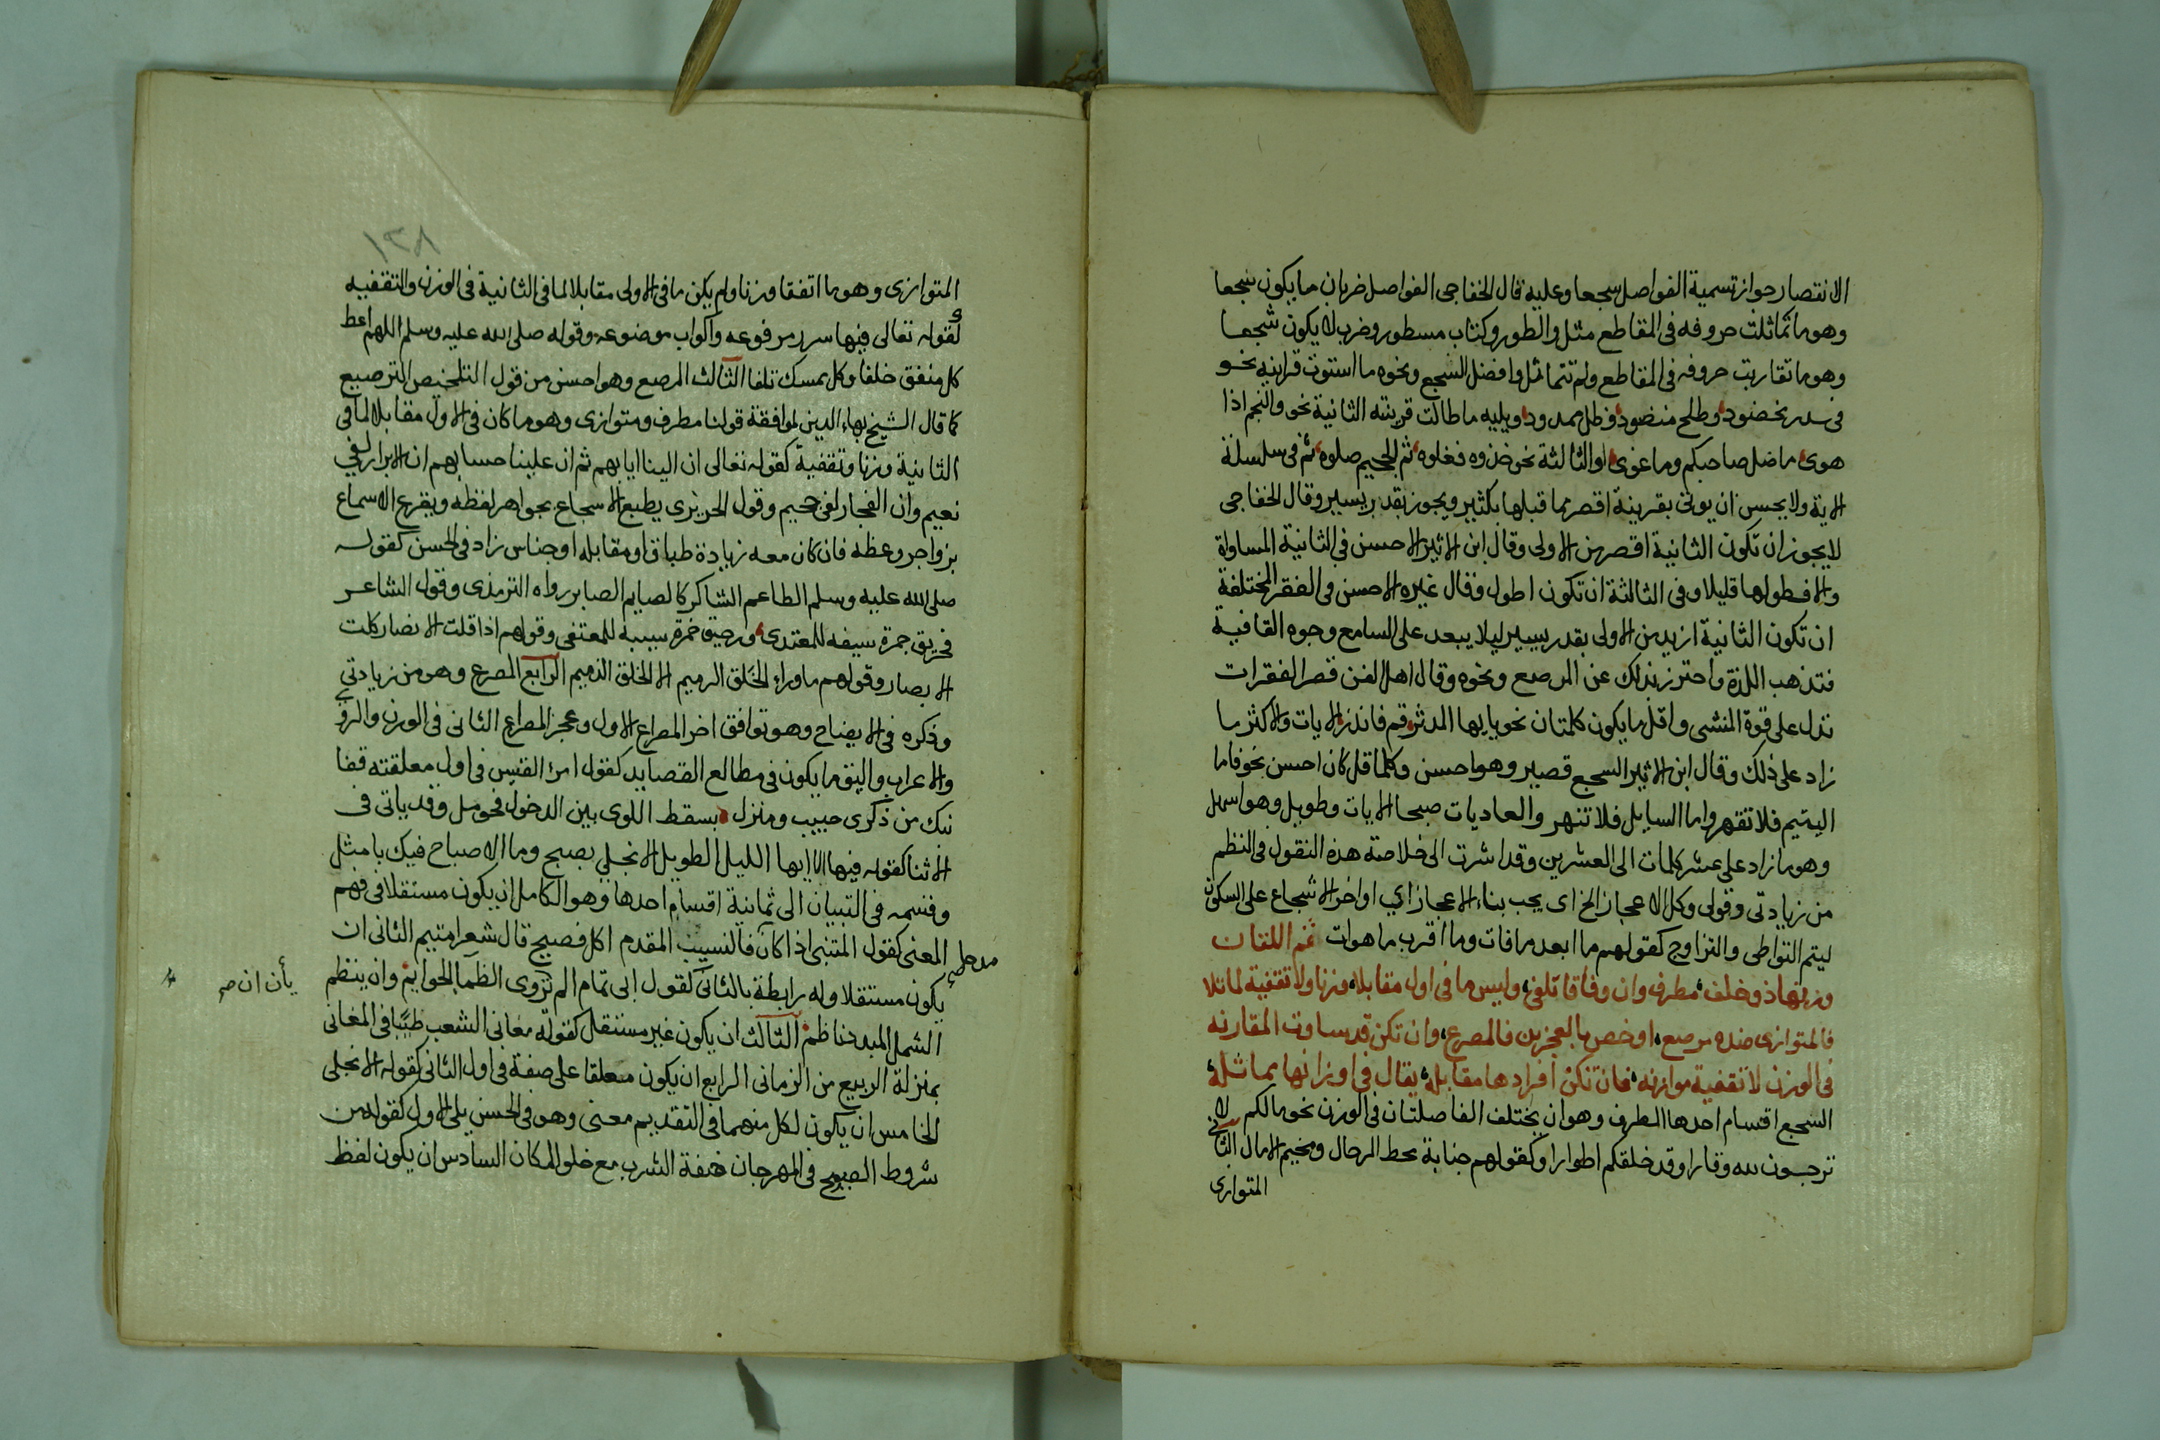 الانتصار جواز تسمية الفواصل سجعا وعليه قال الخفاجى الفواصل ضربان ما يكون سجعا
وهو ما تماثلت حروفه فى المقاطع مثل والطور وكتاب مسطور وضرب لا يكون سجعا
وهو ما تقاربت حروفه فى المقاطع ولم تتماثل وافضل السجع ونحوه ما استوت قراينه نحو
فى سدر مخضود وطلح منضود وظل ممدود ويليه ما طالت قرينته الثانية نحو والنجم اذا
هوى ما ضل صاحبكم وما غوى او الثالثة نحو خذوه فغلوه ثم الجحيم صلوه ثم فى سلسلة
الاية ولا يحسن ان يوتى بقرينة اقصر مما قبلها بكثير ويجوز بقدر يسير وقال الخفاجى
لا يجوز ان تكون الثانية اقصر من الاولى وقال ابن الاثير الاحسن فى الثانية المساواة
والا فطولها قليلا وفى الثالثة ان تكون اطول وقال غيره الاحسن فى الفقر المختلفة
ان تكون الثانية ازيد من الاولى بقدر يسير ليلا يبعد على السامع وجوه القافية
فتذهب اللذة واحترز بذلك عن المرصع ونحوه وقال اهل الفن قصر الفقرات
تدل على قوة المنشى واقل ما يكون كلمتان نحو يايها المدثر قم فانذر الايات والاكثر ما
زاد على ذلك وقال ابن الاثير السجع قصير وهو احسن وكلما قل كان احسن نحو فاما
اليتيم فلا تقهر واما السايل فلا تنهر والعاديات صبحا الايات وطويل وهو اسهل
وهو ما زاد على عشر كلمات الى العشرين وقد اشرت الى خلاصة هذه النقول فى النظم
من زيادتى وقولى وكل الاعجاز الخ اى يجب بناء الاعجاز اي اواخر الاسجاع على السكون
ليتم التواطى والتزاوج كقولهم ما ابعد ما فات وما اقرب ما هوات ثم اللتان
وزنهاذ وخلف مطرف وان وفاقا تلفى وليس ما فى اول مقابلا وزنا ولا تقفية لما تلا
فالمتوازى ضده مرصع او خص بالعجزين فالمصرع وان تكن قد ساوت المقارنه
فى الوزن لا تقفية موازنه فان تكن افرادها مقابله يقال فى اوزانها مماثله
السجع اقسام احدها المطرف وهو ان يختلف الفاصلتان فى الوزن نحو ما لكم لا
ترجون لله وقارا وقد خلقكم اطوارا وكقولهم جنابة محط الرحال ومخيم الامال الثانى
المتوازى
المتوازى وهو ما اتفقا وزنا ولم يكن ما فى الاولى مقابلا لما فى الثانية فى الوزن والتقفيه
كقوله تعالى فيها سرر مرفوعه واكواب موضوعه وقوله صلى الله عليه وسلم اللهم اعط
كل منفق خلفا وكل ممسك تلفا الثالث المرصع وهو احسن من قول التلخيص الترصيع
كما قال الشيخ بهاء الدين لموافقة قولنا مطرف ومتوازى وهو ما كان فى الاول مقابلا لما فى
الثانية وزنا وتقفية كقوله تعالى ان الينا ايابهم ثم ان علينا حسابهم ان الابرار لفي
نعيم وان الفجار لفي جحيم وقول الحريري يطبع الاسجاع بجواهر لفظه ويقرع الاسماع
بزواجر وعظه فان كان معه زيادة طباق او مقابله او جناس زاد فى الحسن كقوله
صلى الله عليه وسلم الطاعم الشاكر كالصايم الصابر رواه الترمذى وقول الشاعر
فحريق جمرة سيفه للمعتدى ورحيق خمرة سيبه للمعتفى وقولهم اذا قلت الانصار كلت
الابصار وقولهم ما وراء الخَلق الرميم الا الخلق الذميم الرابع المصرع وهو من زيادتي
وذكره فى الايضاح وهو توافق اخر المصراع الاول وعجز المصراع الثانى فى الوزن والروي
والاعراب واليق ما يكون فى مطالع القصايد كقول امرئ القيس فى اول معلقته قفا
نبك من ذكرى حبيب ومنزل بسقط اللوى بين الدخول فحومل وقد ياتى فى
الاثنا كقوله فيها الا ايها الليل الطويل الا نجلي بصبح وما الاصباح فيك بامثل
وقسمه فى التبيان الى ثمانية اقسام احدها وهو الكامل ان يكون مستقلا فى فهم
المعنى كقول المتنبى اذا كان فالنسيب المقدم اكل فصيح قال شعرا متيم الثانى ان
يكون مستقلا وله رابطة بالثانى كقول ابى تمام الم تروى الظماء الحوايم وان ينظم
الشمل المبدد ناظم الثالث ان يكون غير مستقل كقوله مغانى الشعب طيبا فى المغانى
بمنزلة الربيع من الزمانى الرابع ان يكون معلقا على صفة فى اول الثانى كقوله الا نجلى
الخامس ان يكون لكل منهما فى التقديم معنى وهو فى الحسن يلى الاول كقوله من
شروط الصبوح فى المهرجان خفة الشرب مع خلو المكان السادس ان يكون لفظ
مدح
يأن ان صح